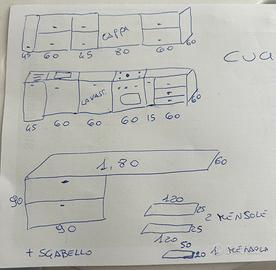 CAPPA
45 60 45 80 60 60
CUA
LAVAST.
45 60 60 60 15 60 60
1,80 60
90
90
120 25
2 MENSOLE
120 25
50
20 1 MENSOLA
+ SGABELLO